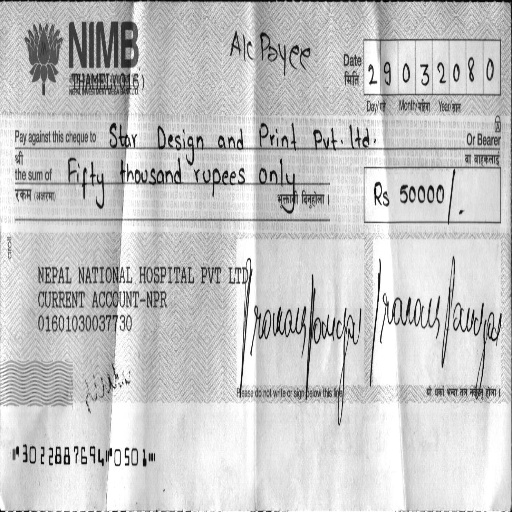 NIMB
THAMEL (015)
A/c Payee
Date
मिति
29032080
Day/गते Month/महिना Year/साल
Pay against this cheque to Star Design and Print Pvt. ltd. Or Bearer
श्री वा वाहकलाई
the sum of Fifty thousand rupees only
रकम (अक्षरमा) भुक्तानी दिनुहोला ।
Rs 50000/.
NEPAL NATIONAL HOSPITAL PVT LTD
CURRENT ACCOUNT-NPR
01601030037730
Please do not write or sign below this line
⑈3022887694⑈0501⑈